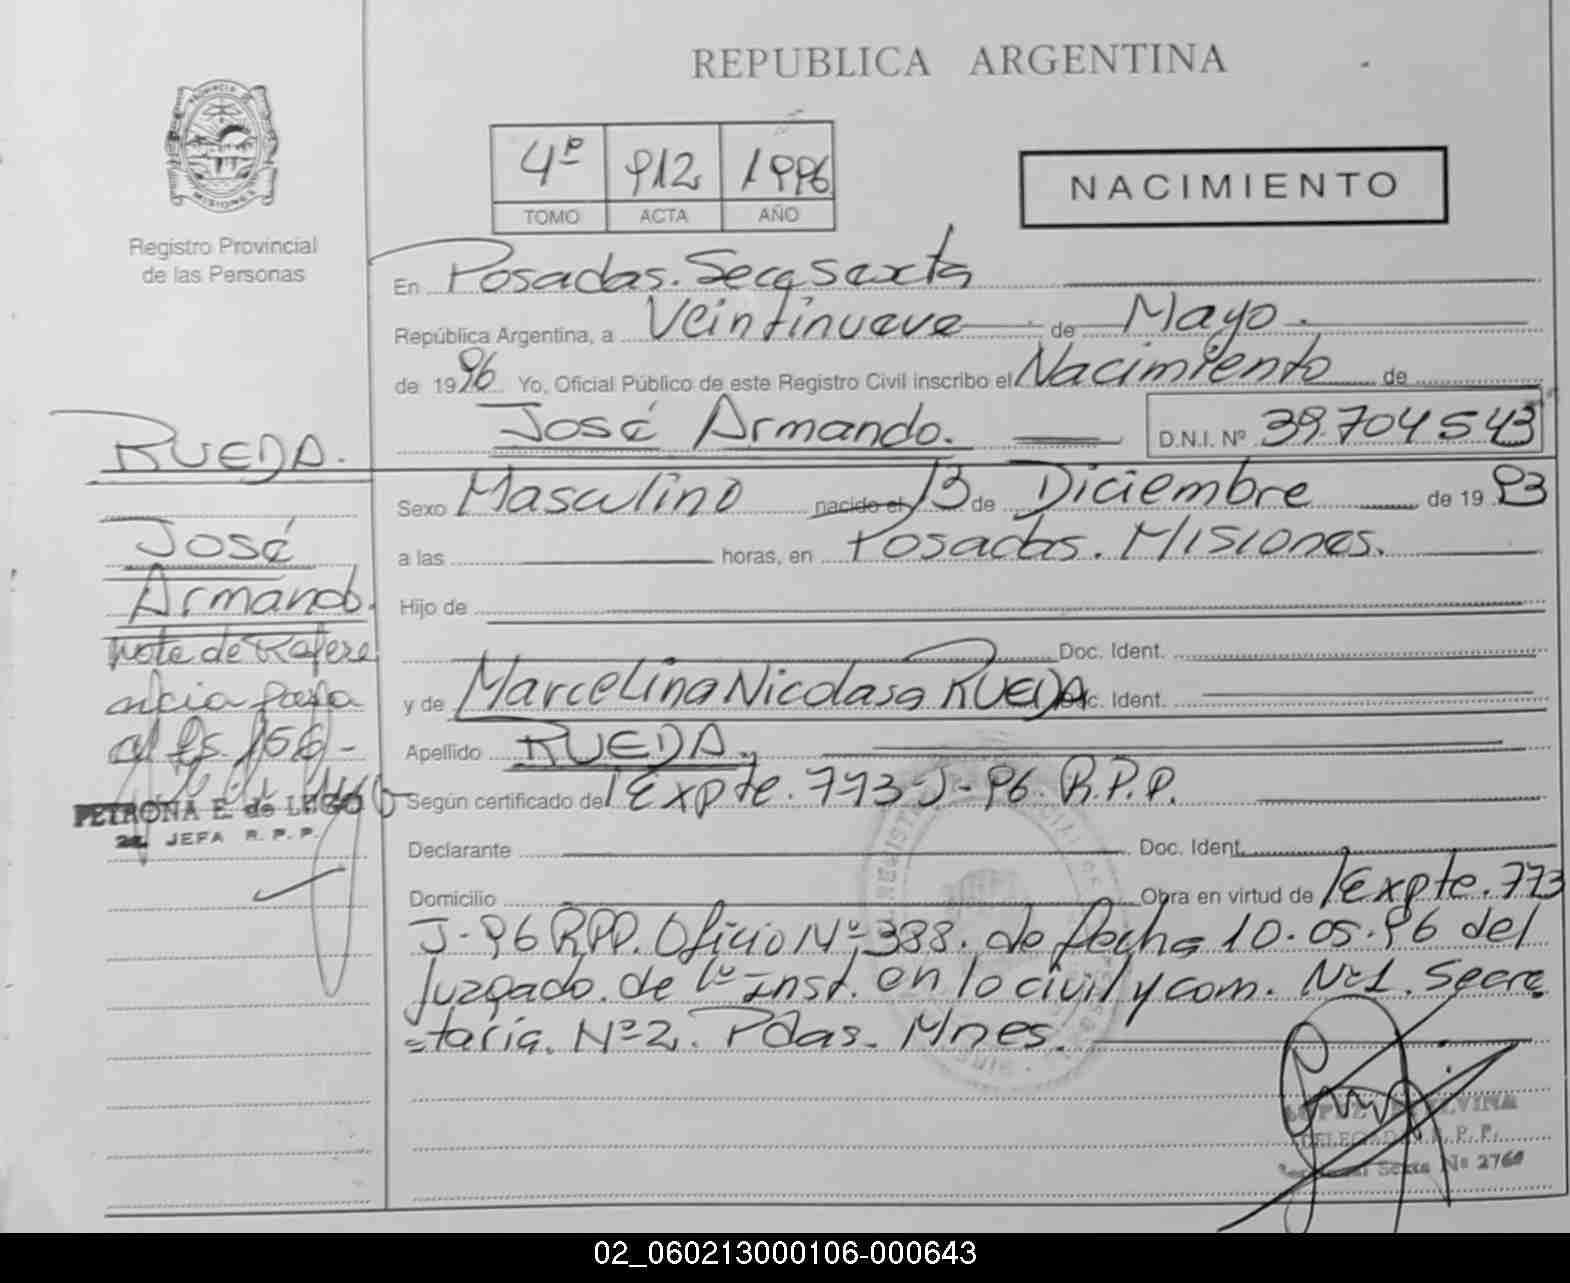 REPUBLICA ARGENTINA
PROVINCIA DE
MISIONES
Registro Provincial
de las Personas
4º 912 1996
TOMO ACTA AÑO
NACIMIENTO
En Posadas. Secc Sexta
República Argentina, a Veintinueve de Mayo.
de 1996 Yo, Oficial Público de este Registro Civil inscribo el Nacimiento de
José Armando. D.N.I. Nº 39.704543
RUEDA.
José
Armando.
Nota de Refere
ncia pasa
al fs. 156-
PETRONA E. de LUGO
JEFA R. P. P.
Sexo Masculino nacido el 13 de Diciembre de 1993
a las horas, en Posadas. Misiones.
Hijo de
Doc. Ident.
y de Marcelina Nicolasa RUEDA Doc. Ident.
Apellido RUEDA.
Según certificado de Expte. 773-J-96 R.P.P.
Declarante Doc. Ident.
Domicilio Obra en virtud de Expte. 773
J-96 RPP. Oficio Nº 388. de fecha 10.05.96 del
Juzgado. de 1º Inst. en lo civil y com. Nº1. Secre
=taria. Nº2. Pdas. Mnes.
DELEGADA R. P. P.
Sexta Nº 2760
02_060213000106-000643